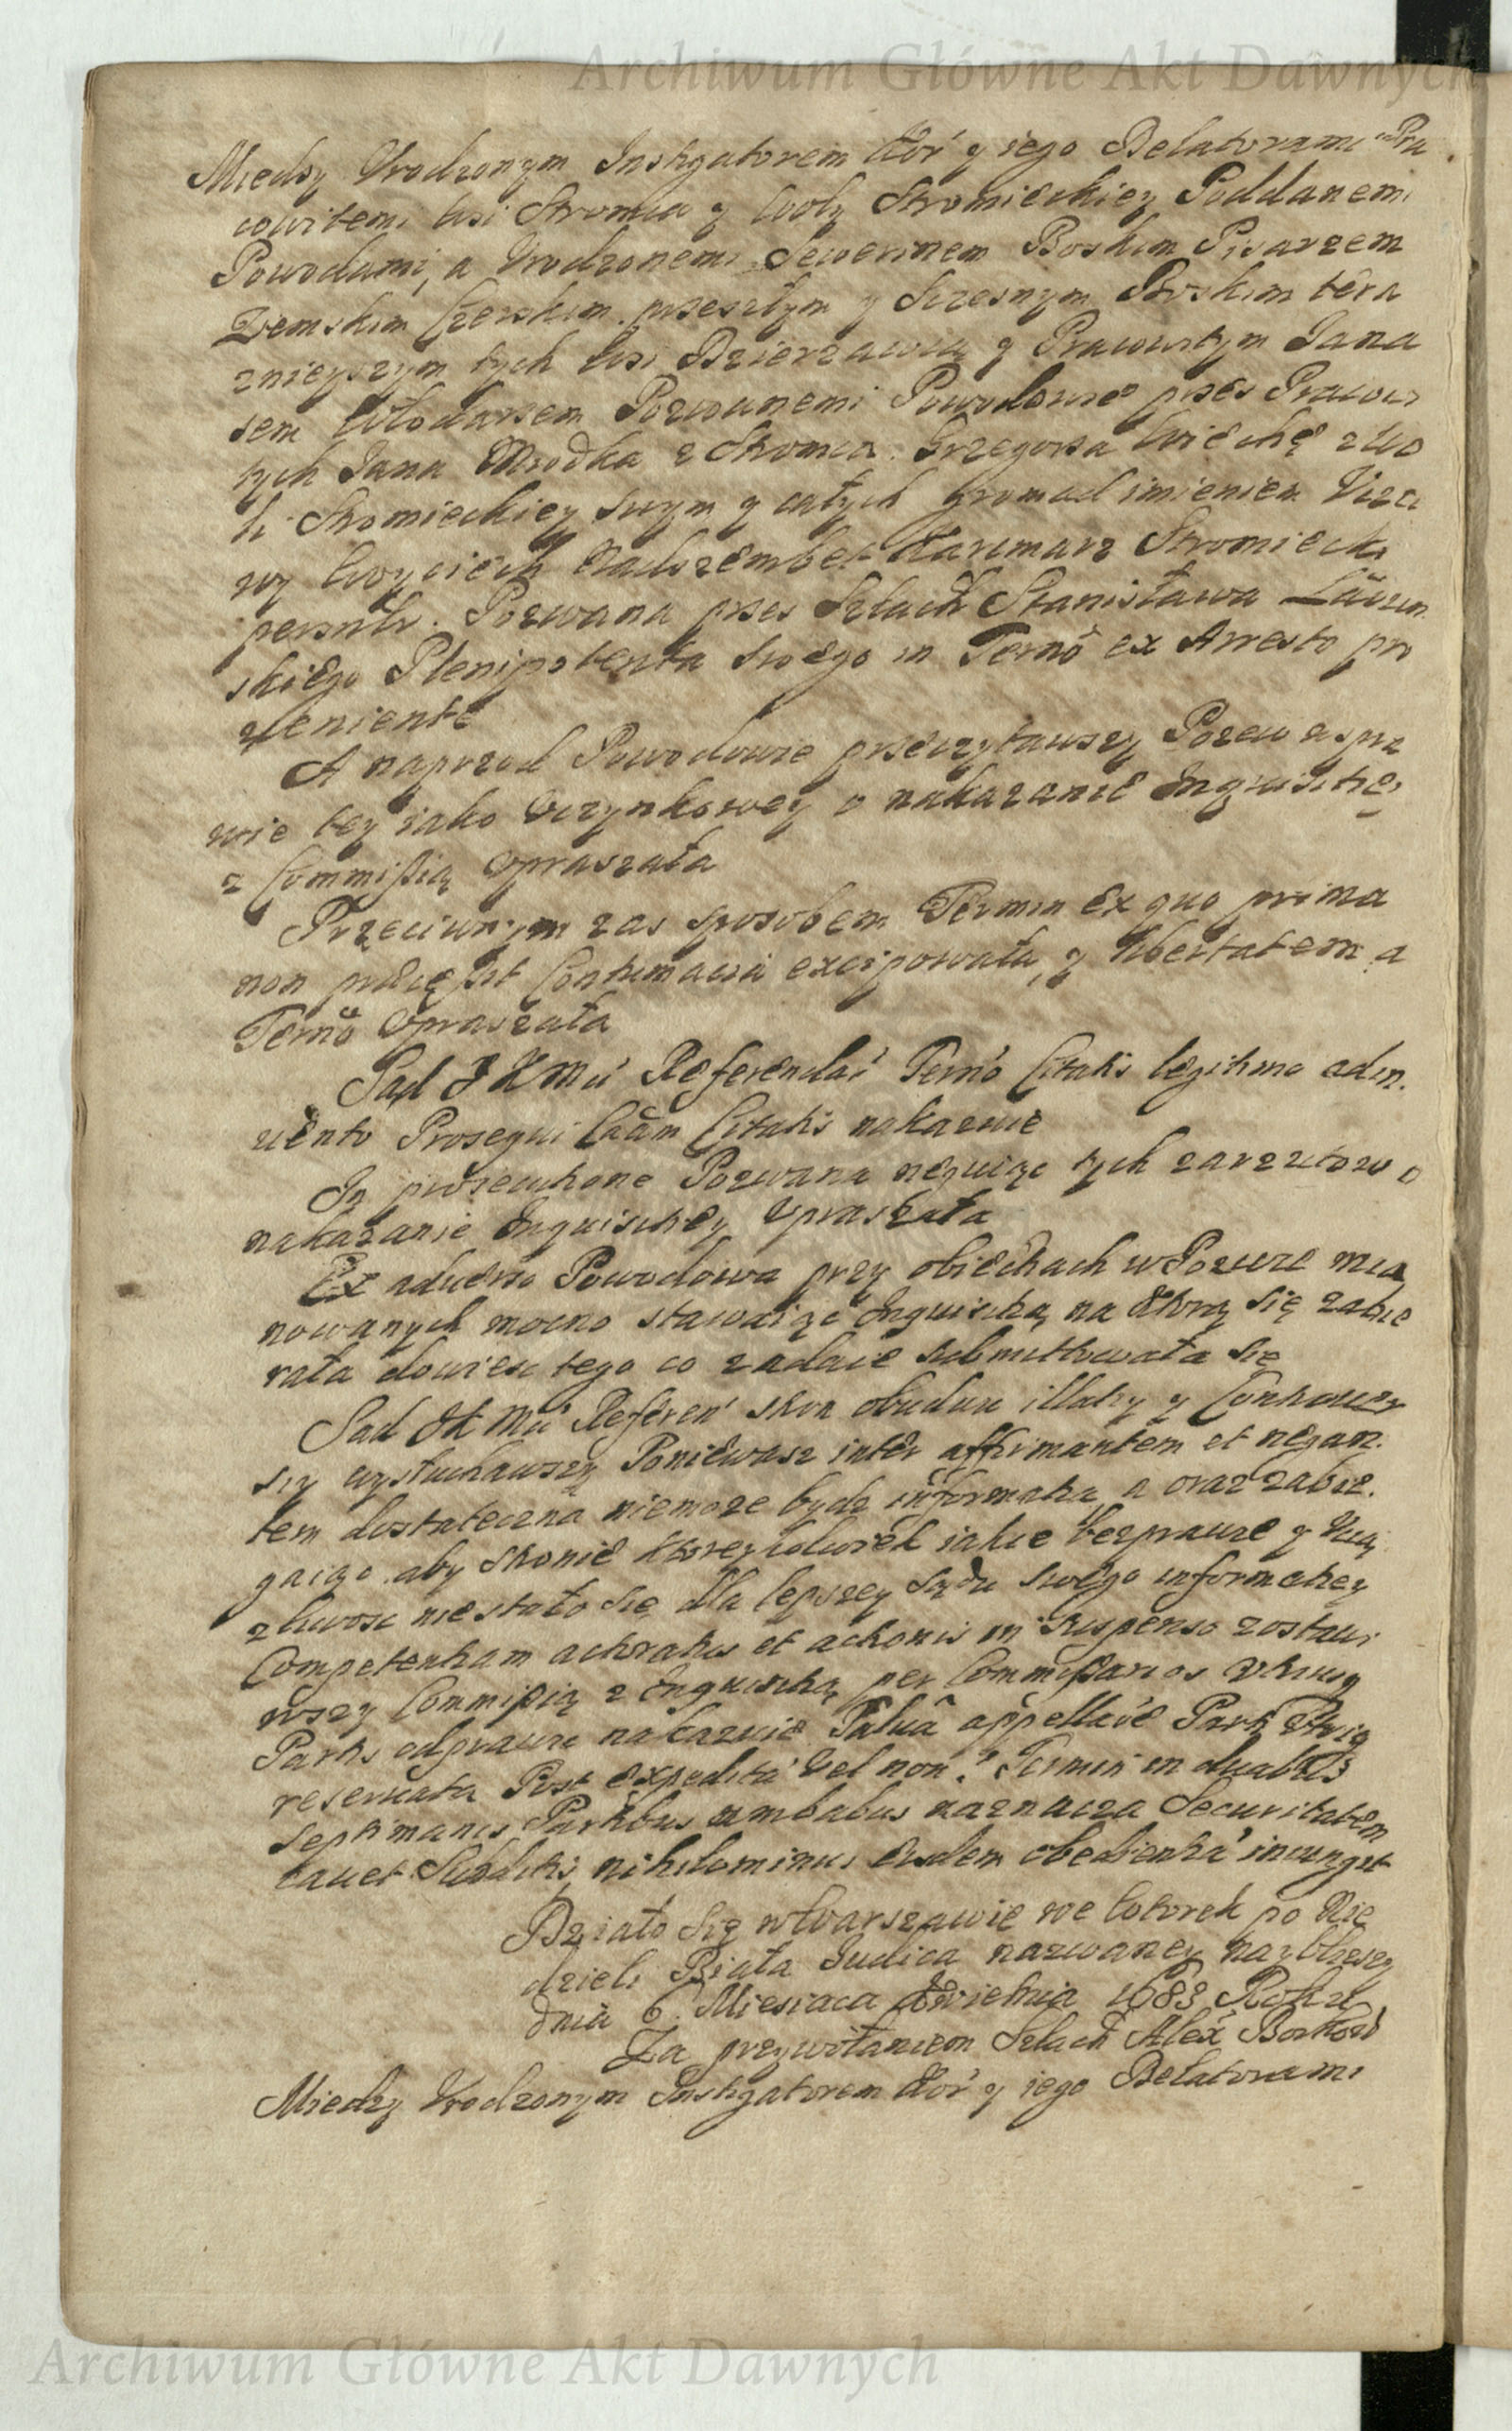 Archiwum Główne Akt Dawnych
Miedzy Vrodzonym Instygatorem Kor̃ y iego Delatorami Pra
cowitemi wsi Stromca y Woly Stromieckiey Poddanemi
Powodami, a Vrodzonemi Sewerinem Boskim Pisarzem
Ziemskim Czerskim przeszłym y Szczesnym Boskim tera
znieyszym tych wsi Dzierzawcą y Pracowitym Jana
sem Włodarzem Pozwanemi Powodowie przes Pracowi
tych Jana Mrodka z Stromca Grzegorza Wiechę z Wo
li Stromieckiey swym y całych gromad imieniem
Woyciech Karczmarz Stromiecki
Pozwana przes Szlach Stanisława
skiego Plenipotenta swego in Termo ex Arresto pro
ueniente
A naprzod Powodowie przeczytawszy Pozew w spra
wie tey iako Vczynkowey o nakazanie Inquisitiey
z Commißią Vpraszała
Przeciwnym zas sposobem Termin ex quo prima
non Contumacia excipowała, y libertatem a
Termo Vpraszała
Sąd J K Mci Referendar Termo Citatis legitimo adin
uento Prosequi Caam Citatis nakazuie
In prosecutione Pozwana neguiąc tych zarzutow o
nakazanie Inquisitiey Vpraszała
Ex aduerso Powodowa przy obiectiach w Pozwie mia
nowanych mocno stawaiąc Inquisitią na ktorą się zabie
rała dowiesc tego co zadaie submittowała się
Sąd J K Mci Referen stron obudwu illaty y Controuer
sỹ wysłuchawszy Poniewasz inter affirmantem et negan
tem dostateczna niemoze bydz informatia a oraz zabie
gaiąc aby stronie ktoreykolwiek iakie bezprawie y Vcią
zliwosc niestało się dla lepszey Sądu swego informatiey
Competentiam attentatis et actionis in suspenso zostawi
wszy Commißią z Inquisitią per Commißarios Vtriusq
Partis odprawic nakazuie Salua appellaõe Parti Vtriq
reseruata Post expedita vel non: Termin in duabus
Septimanis Partibus ambabus naznacza Securitatem
cauet Subditis nihilominus Eisdem obedientia iniungit
Działo się w Warszawie we Wtorek po Nie
dzieli Biała Iudica nazwaney nayblizszy
dnia 6. Miesiaca Kwietnia 1683 Roku
Za przywołaniem Szlach Alex
Miedzy Vrodzonym Instygatorem Kor̃ y iego Delatorami
Archiwum Główne Akt Dawnych